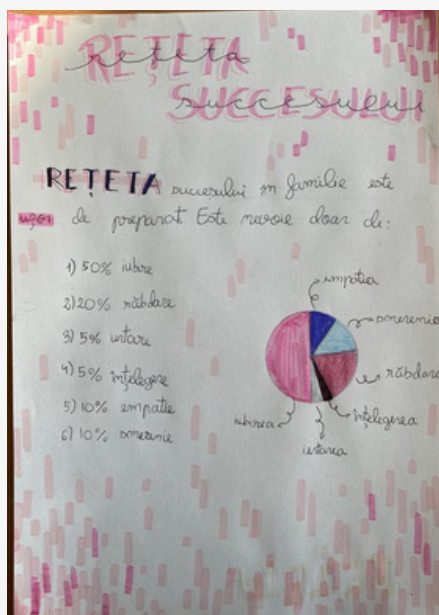 REȚETA
rețeta
SUCCESULUI
succesului
REȚETA succesului în familie este
ușor de preparat. Este nevoie doar de:
1) 50% iubire
2) 20% răbdare
3) 5% iertare
4) 5% înțelegere
5) 10% empatie
6) 10% omenenie
empatia
omenenia
răbdarea
înțelegerea
iertarea
iubirea